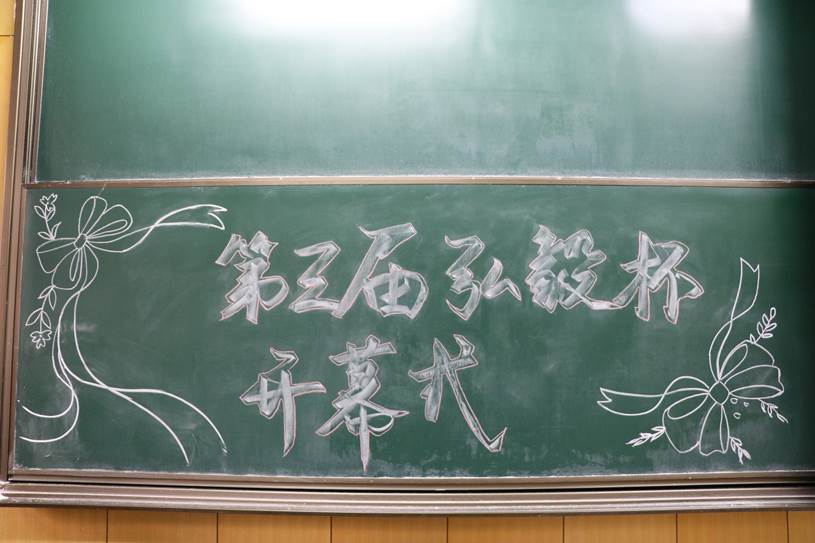 第三届弘毅杯
开幕式